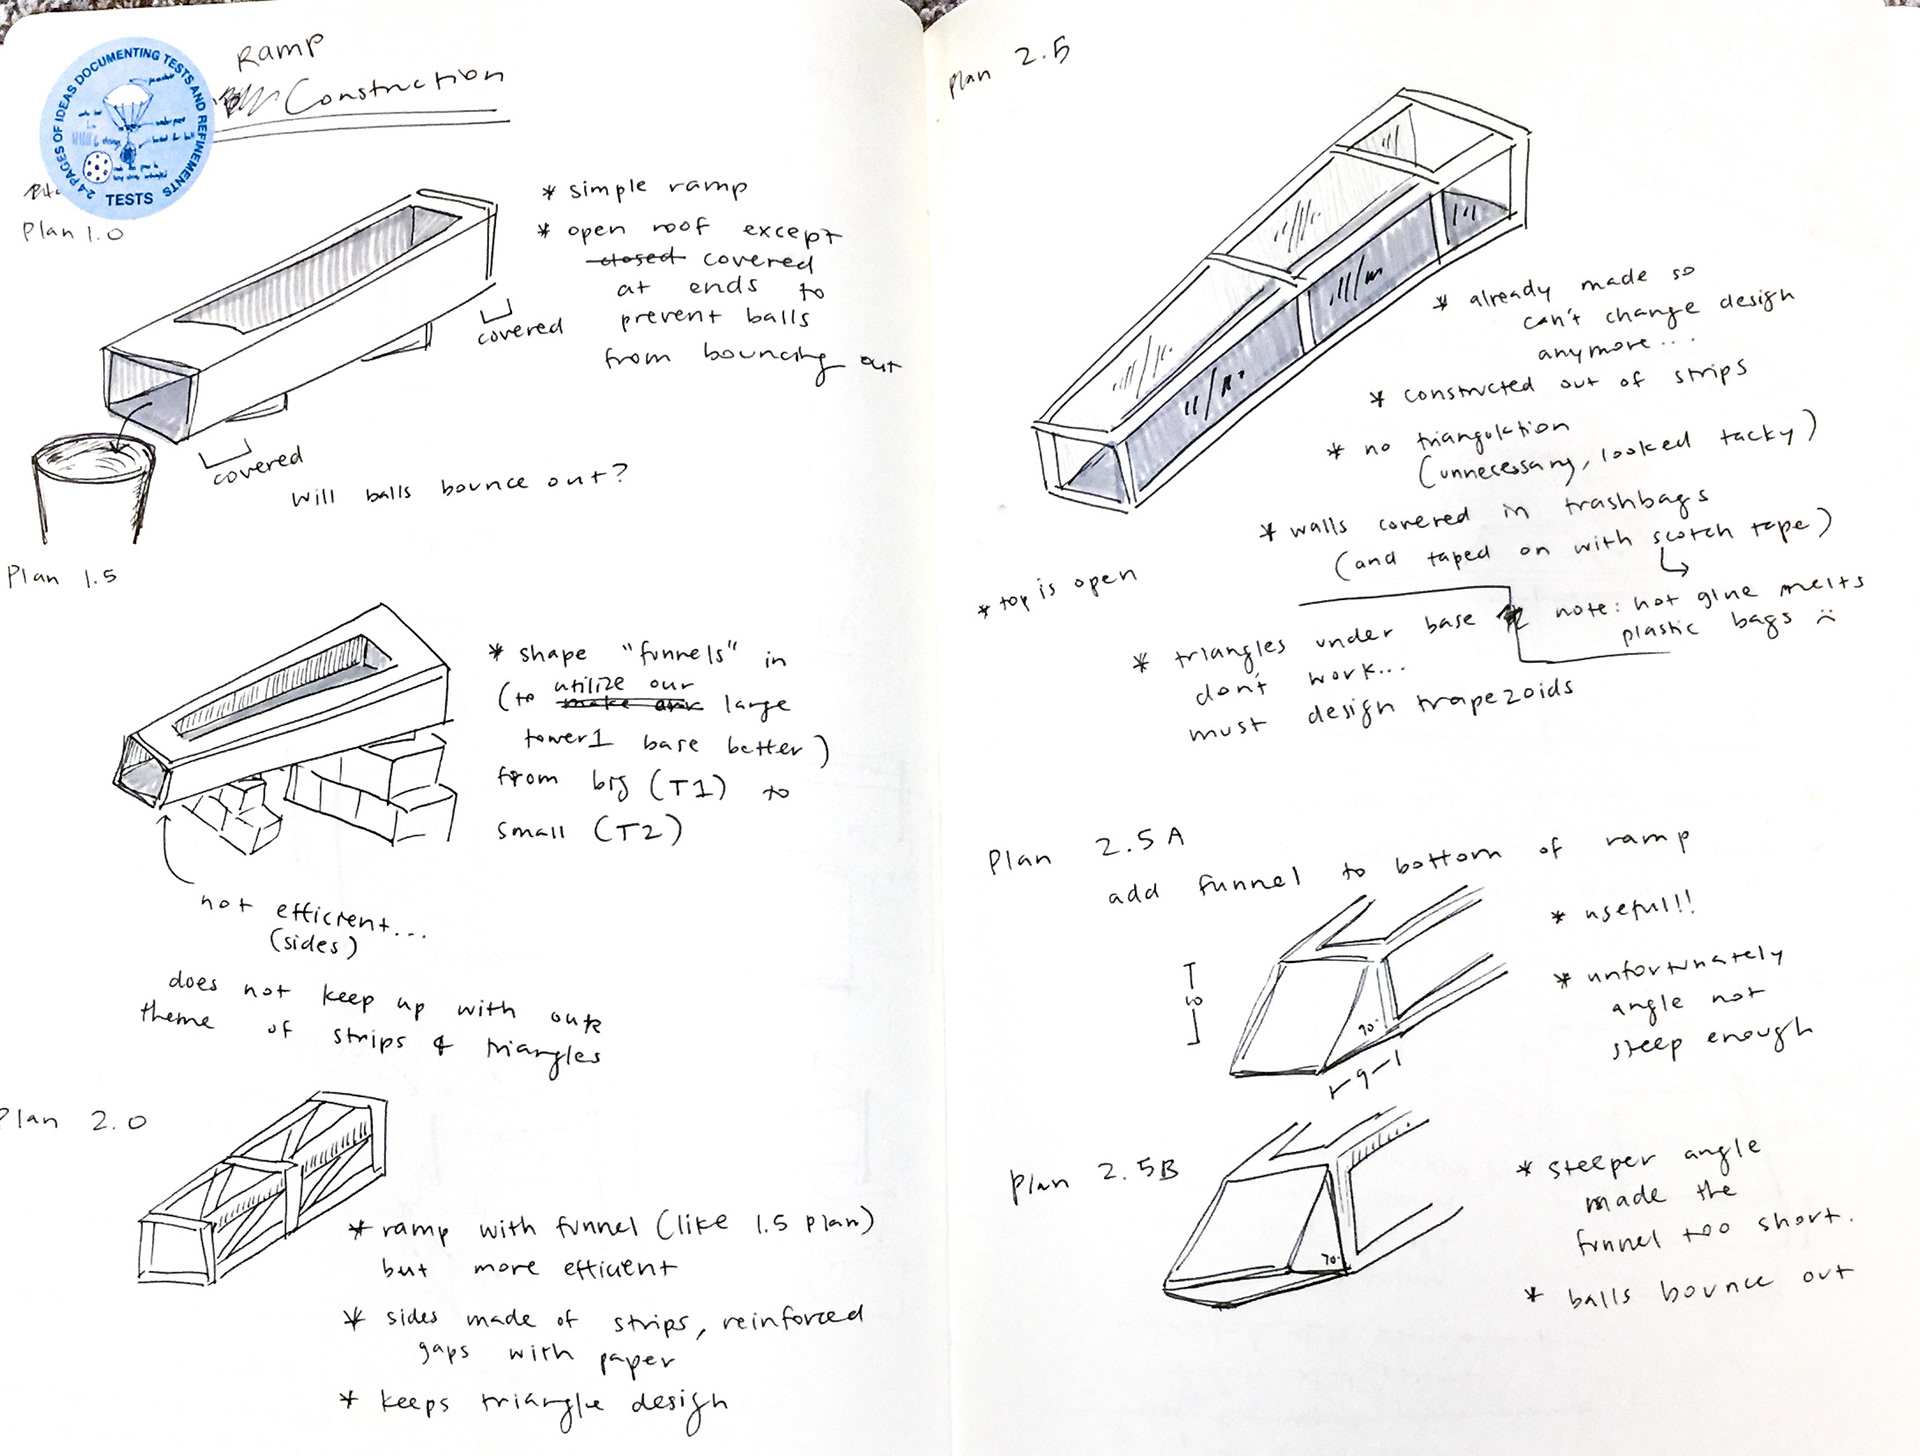 Ramp
Construction
24 PAGES OF IDEAS DOCUMENTING TESTS AND REFINEMENTS
TESTS
Plan 1.0
* simple ramp
* open roof except
closed covered
at ends to
prevent balls
from bouncing out
covered
covered
will balls bounce out?
Plan 1.5
* shape "funnels" in
(to utilize our
make our large
tower1 base better)
from big (T1) to
small (T2)
not efficient...
(sides)
does not keep up with our
theme of strips & triangles
Plan 2.0
* ramp with funnel (like 1.5 plan)
but more efficient
* sides made of strips, reinforced
gaps with paper
* keeps triangle design
Plan 2.5
* already made so
can't change design
anymore...
* constructed out of strips
* no triangulation
(unnecessary, looked tacky)
* walls covered in trashbags
(and taped on with scotch tape)
* top is open
note: hot glue melts
plastic bags :(
* triangles under base
don't work...
must design trapezoids
Plan 2.5 A
add funnel to bottom of ramp
* useful!!
* unfortunately
angle not
steep enough
90°
9
Plan 2.5B
* steeper angle
made the
funnel too short.
* balls bounce out
70°